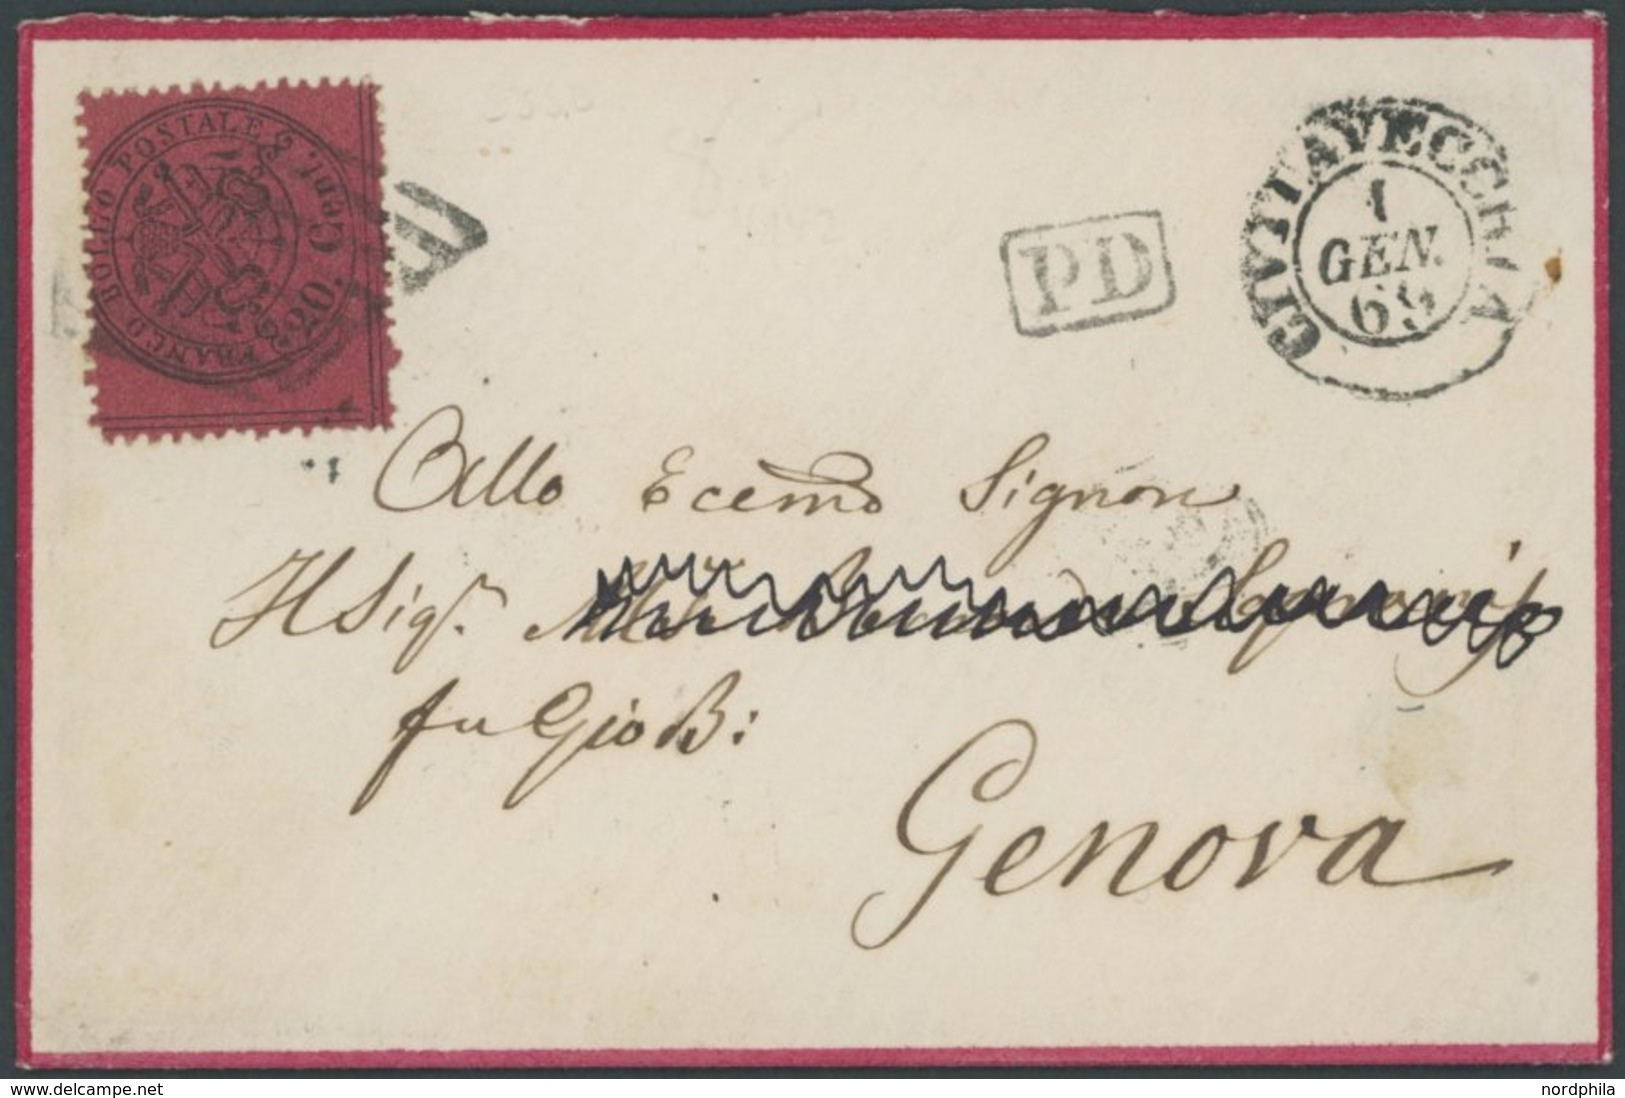 FRANCO BOLLO POSTALE
20. Cent.
PD
CIVITAVECCHIA
1
GEN.
69
Allo Ecemo Signor
Il Sigr.
fu Gio B:
Genova
www.delcampe.net
nordphila